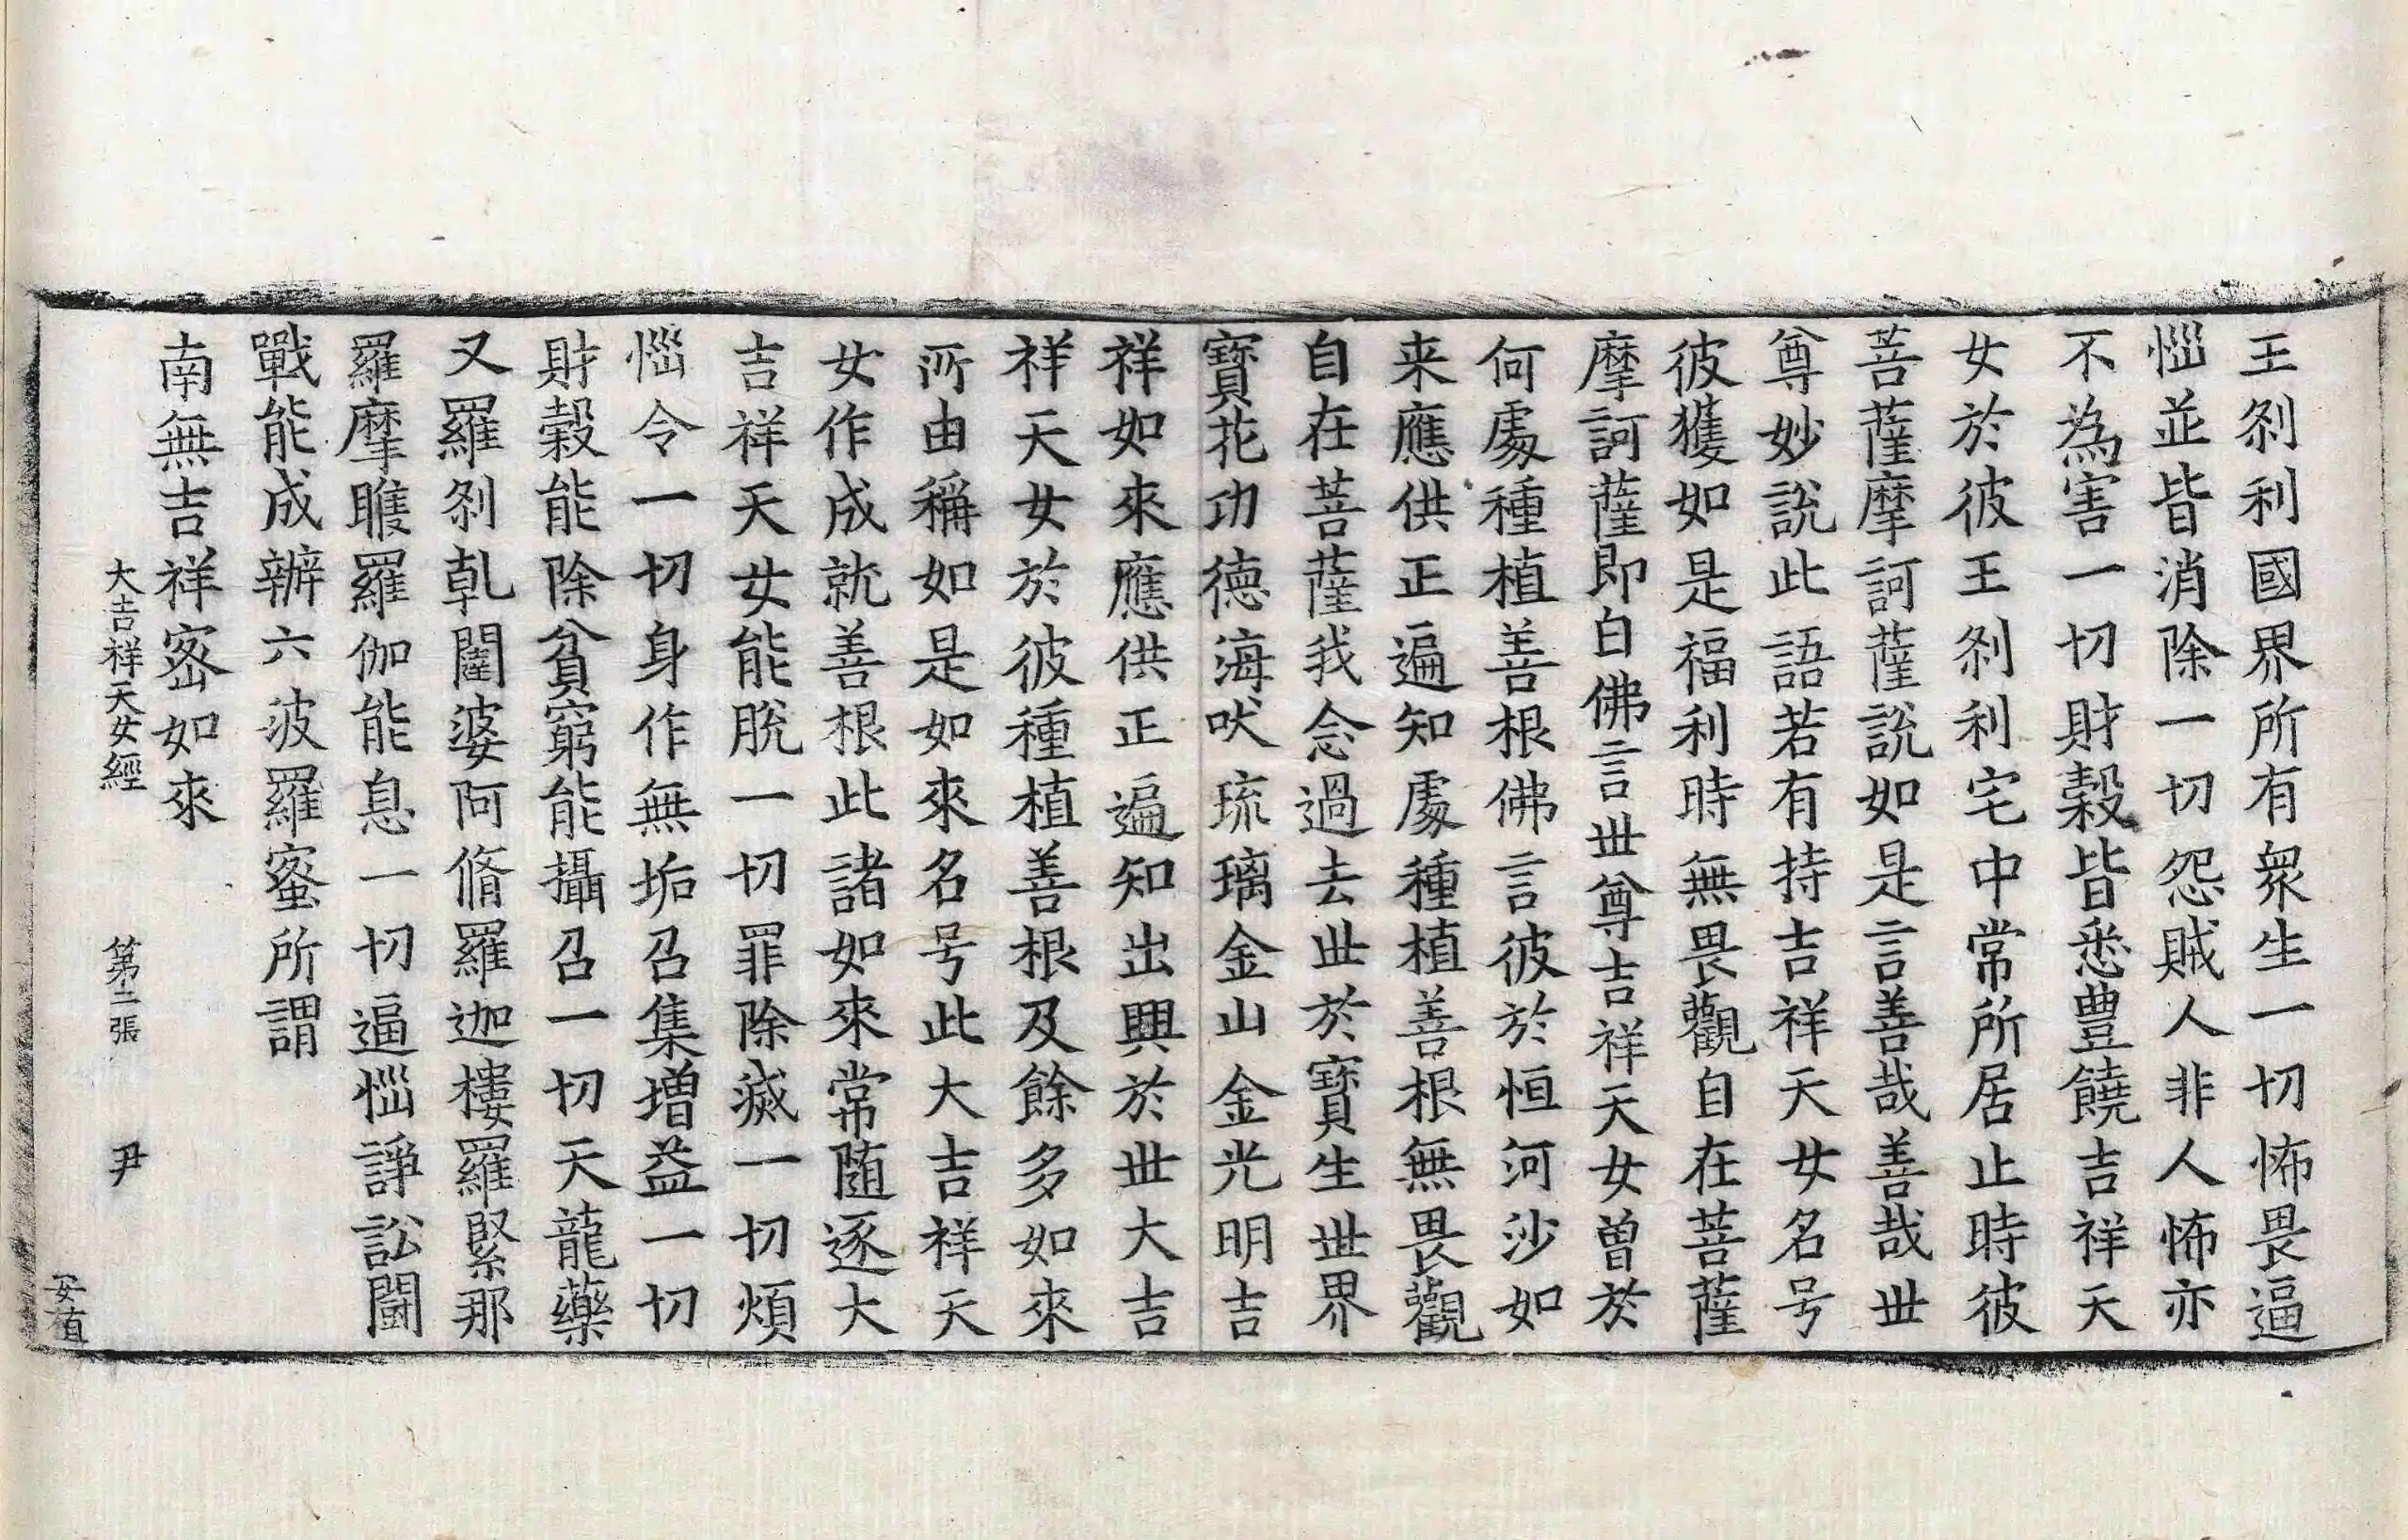 王刹利國界所有衆生一切怖畏逼
惱並皆消除一切怨賊人非人怖亦
不為害一切財穀皆悉豊饒吉祥天
女於彼王刹利宅中常所居止時彼
菩薩摩訶薩說如是言善哉善哉世
尊妙說此語若有持吉祥天女名号
彼獲如是福利時無畏觀自在菩薩
摩訶薩即白佛言世尊吉祥天女曾於
何處種植善根佛言彼於恒河沙如
来應供正遍知處種植善根無畏觀
自在菩薩我念過去世於寶生世界
寶花功德海吠琉璃金山金光明吉
祥如來應供正遍知出興於世大吉
祥天女於彼種植善根及餘多如來
所由稱如是如來名号此大吉祥天
女作成就善根此諸如來常隨逐大
吉祥天女能脫一切罪除滅一切煩
惱令一切身作無垢召集增益一切
財穀能除貧窮能攝召一切天龍藥
叉羅刹乹闥婆阿脩羅迦樓羅緊那
羅摩睺羅伽能息一切逼惱諍訟鬪
戰能成辦六波羅蜜所謂
南無吉祥密如來
大吉祥天女經 第二張 尹
安植